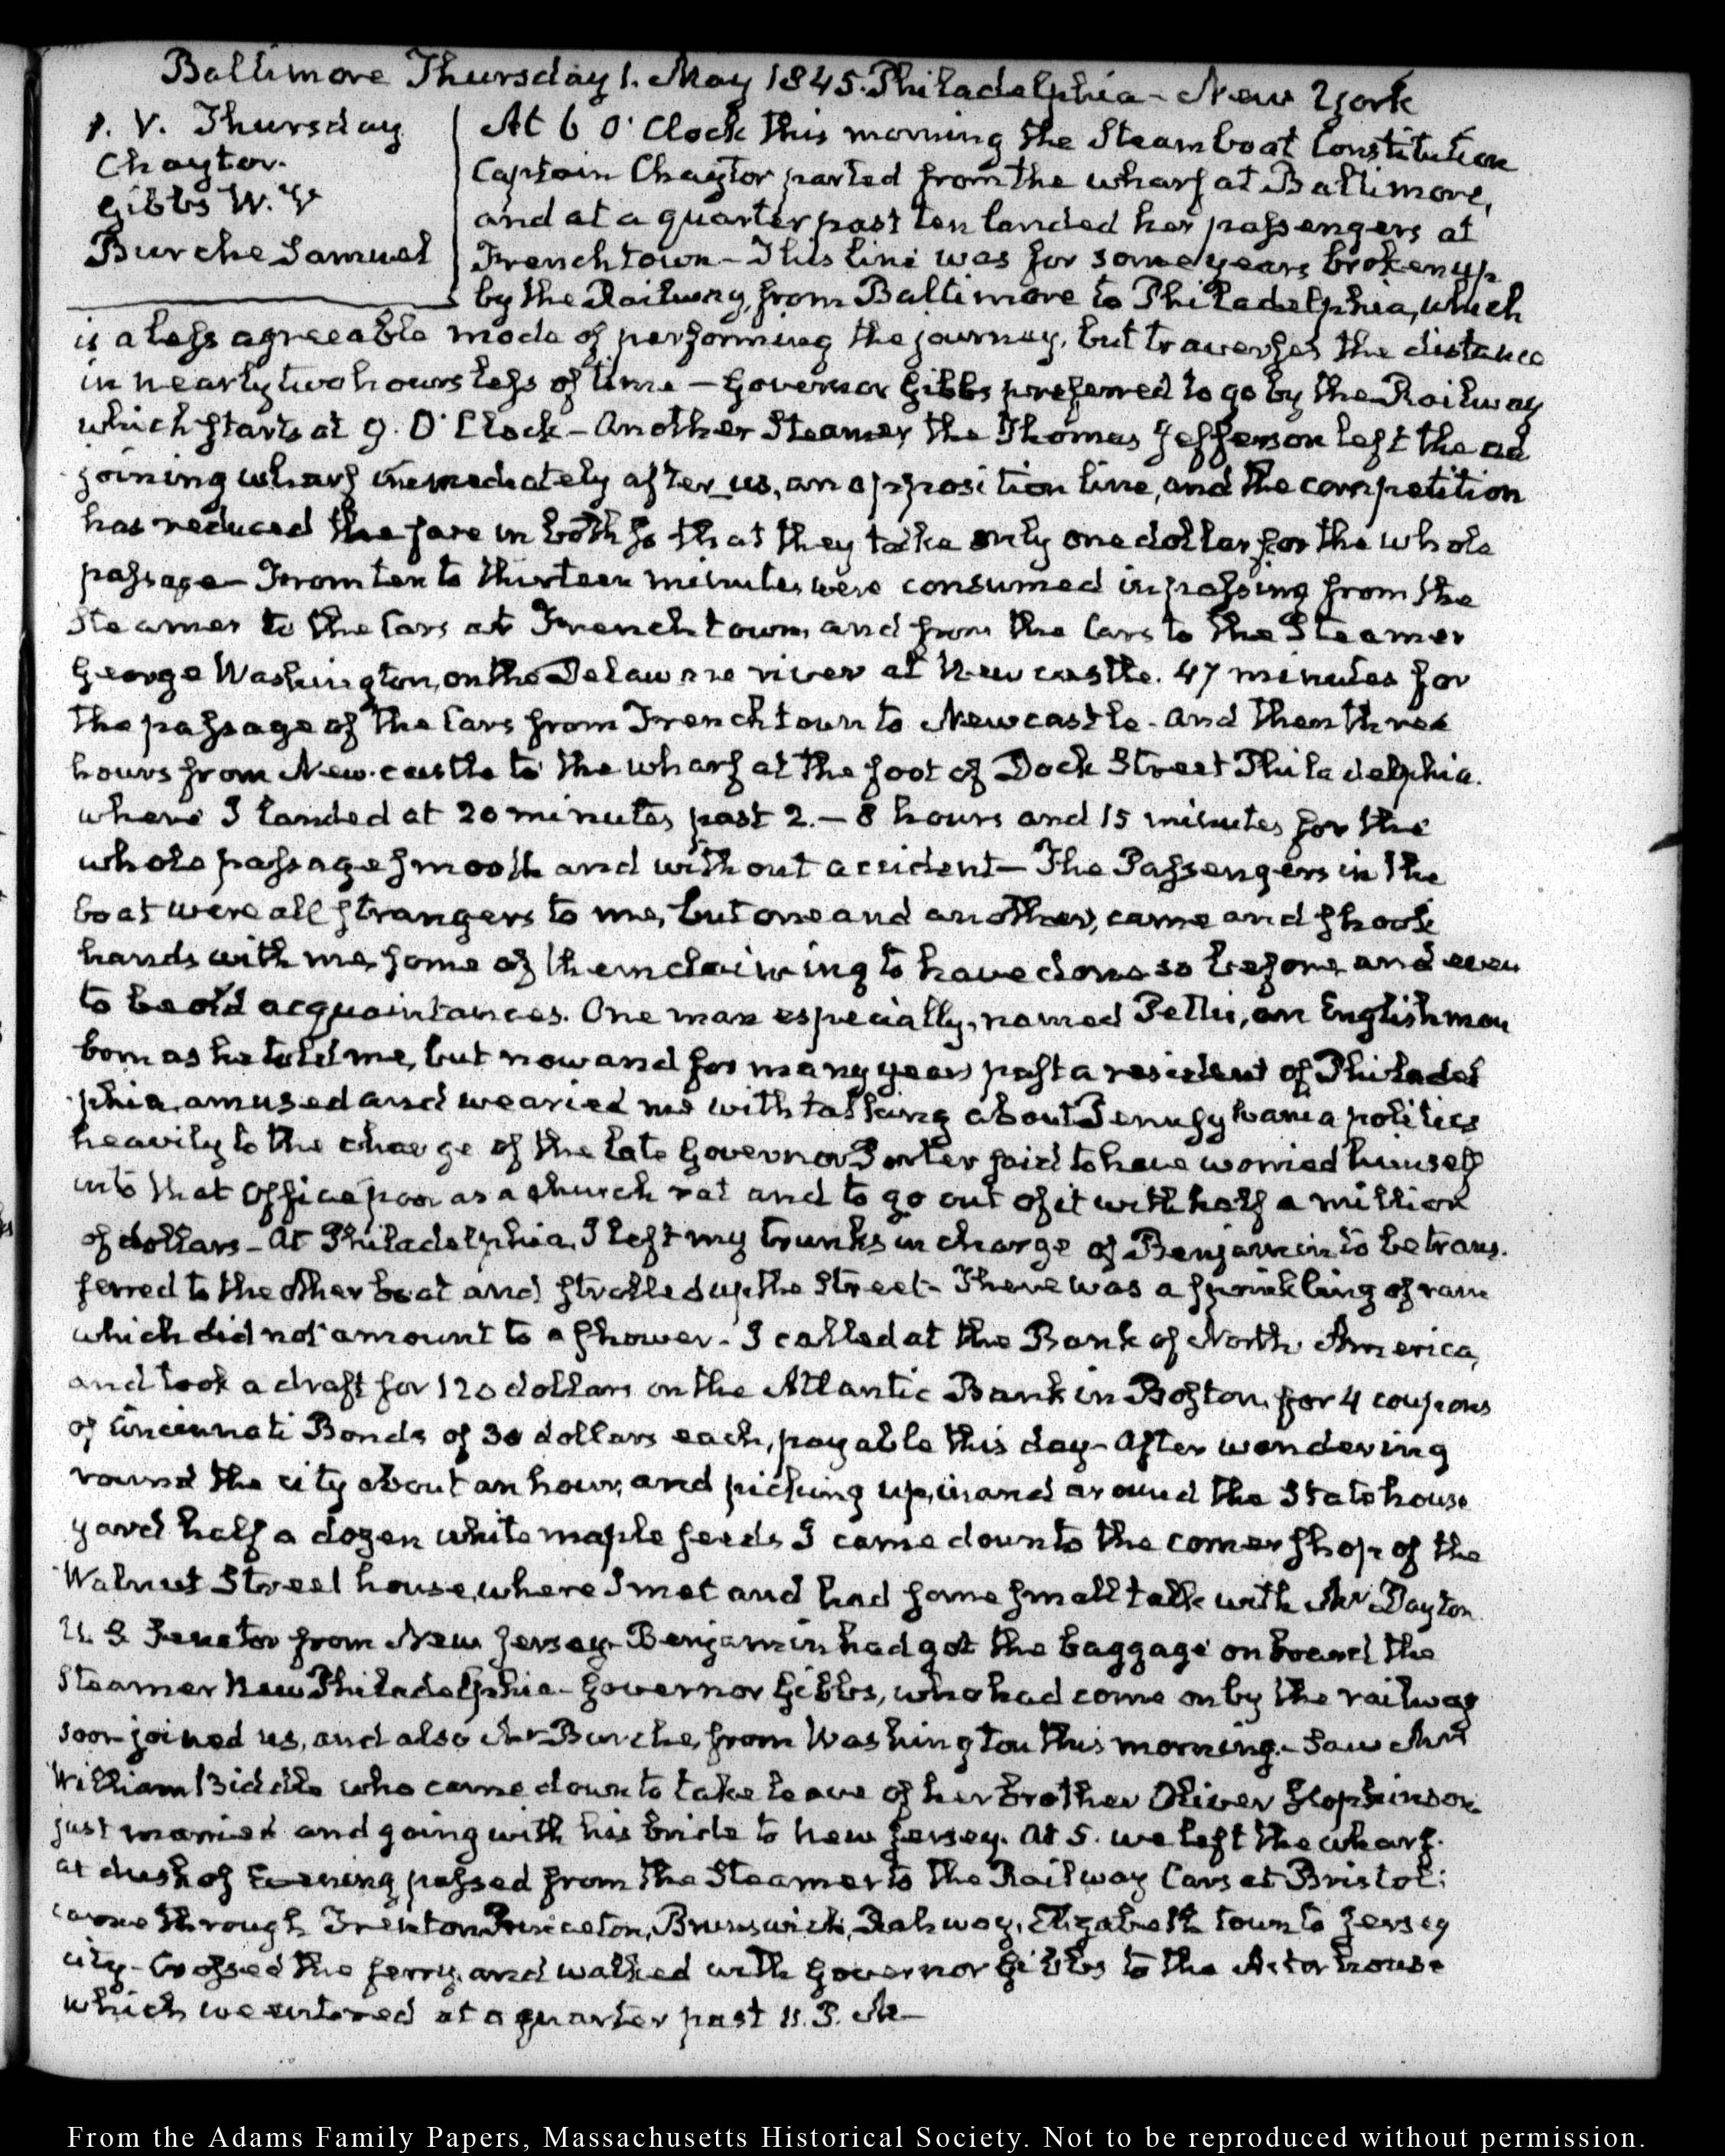 Baltimore Thursday 1. May 1845. Philadelphia - New York
1. V. Thursday
Chaytor.
Gibbs W. C
Burche Samuel
At 6 O'Clock this morning the Steamboat Constitution
Captain Chaytor parted from the wharf at Baltimore,
and at a quarter past ten landed her passengers at
Frenchtown - This line was for some years broken up
by the Railway, from Baltimore to Philadelphia, which
is a less agreeable mode of performing the journey, but traverses the distance
in nearly two hours less of time — Governor Gibbs preferred to go by the Railway
which starts at 9. O'Clock - Another Steamer, the Thomas Jefferson left the ad
joining wharf immediately after us, an opposition line, and the competition
has reduced the fare in both so that they take only one dollar for the whole
passage - From ten to thirteen minutes were consumed in passing from the
Steamer to the Cars at Frenchtown, and from the Cars to the Steamer
George Washington, on the Delaware river at Newcastle. 47 minutes for
the passage of the Cars from Frenchtown to Newcastle - and then three
hours from New-castle to the wharf at the foot of Dock Street Philadelphia.
where I landed at 20 minutes past 2. — 8 hours and 15 minutes for the
whole passage smooth and without accident — The Passengers in the
boat were all strangers to me, but one and another, came and shook
hands with me, some of them claiming to have done so before, and even
to be old acquaintances. One man especially, named Pettis, an Englishman
born as he told me, but now and for many years past a resident of Philadel
phia, amused and wearied me with talking about Pennsylvania politics
heavily to the charge of the late Governor Porter said to have wormed himself
into that Office poor as a church rat and to go out of it with half a million
of dollars - At Philadelphia, I left my trunks in charge of Benjamin to be trans.
ferred to the other boat and strolled up the Street - There was a sprinkling of rain
which did not amount to a shower - I called at the Bank of North America,
and took a draft for 120 dollars on the Atlantic Bank in Boston, for 4 coupons
of Cincinnati Bonds of 30 dollars each, payable this day - After wandering
round the city about an hour, and picking up, in and around the State house
yard half a dozen white maple seeds I came down to the corner shop of the
Walnut Street house, where I met and had some small talk with Mr. Dayton
U. S. Senator from New Jersey - Benjamin had got the baggage on board the
Steamer New Philadelphia - Governor Gibbs, who had come on by the railway
soon joined us, and also Mr Burche, from Washington this morning. - Saw Mrs
William Biddle who came down to take leave of her brother Oliver Hopkinson
just married and going with his bride to New Jersey. At 5. we left the wharf.
at dusk of Evening passed from the Steamer to the Railway Cars at Bristol;
came through Trenton, Princeton, Brunswick, Rahway, Elizabeth town to Jersey
city - Crossed the ferry, and walked with Governor Gibbs to the Astor house
which we entered at a quarter past 11. P. M —
From the Adams Family Papers, Massachusetts Historical Society. Not to be reproduced without permission.